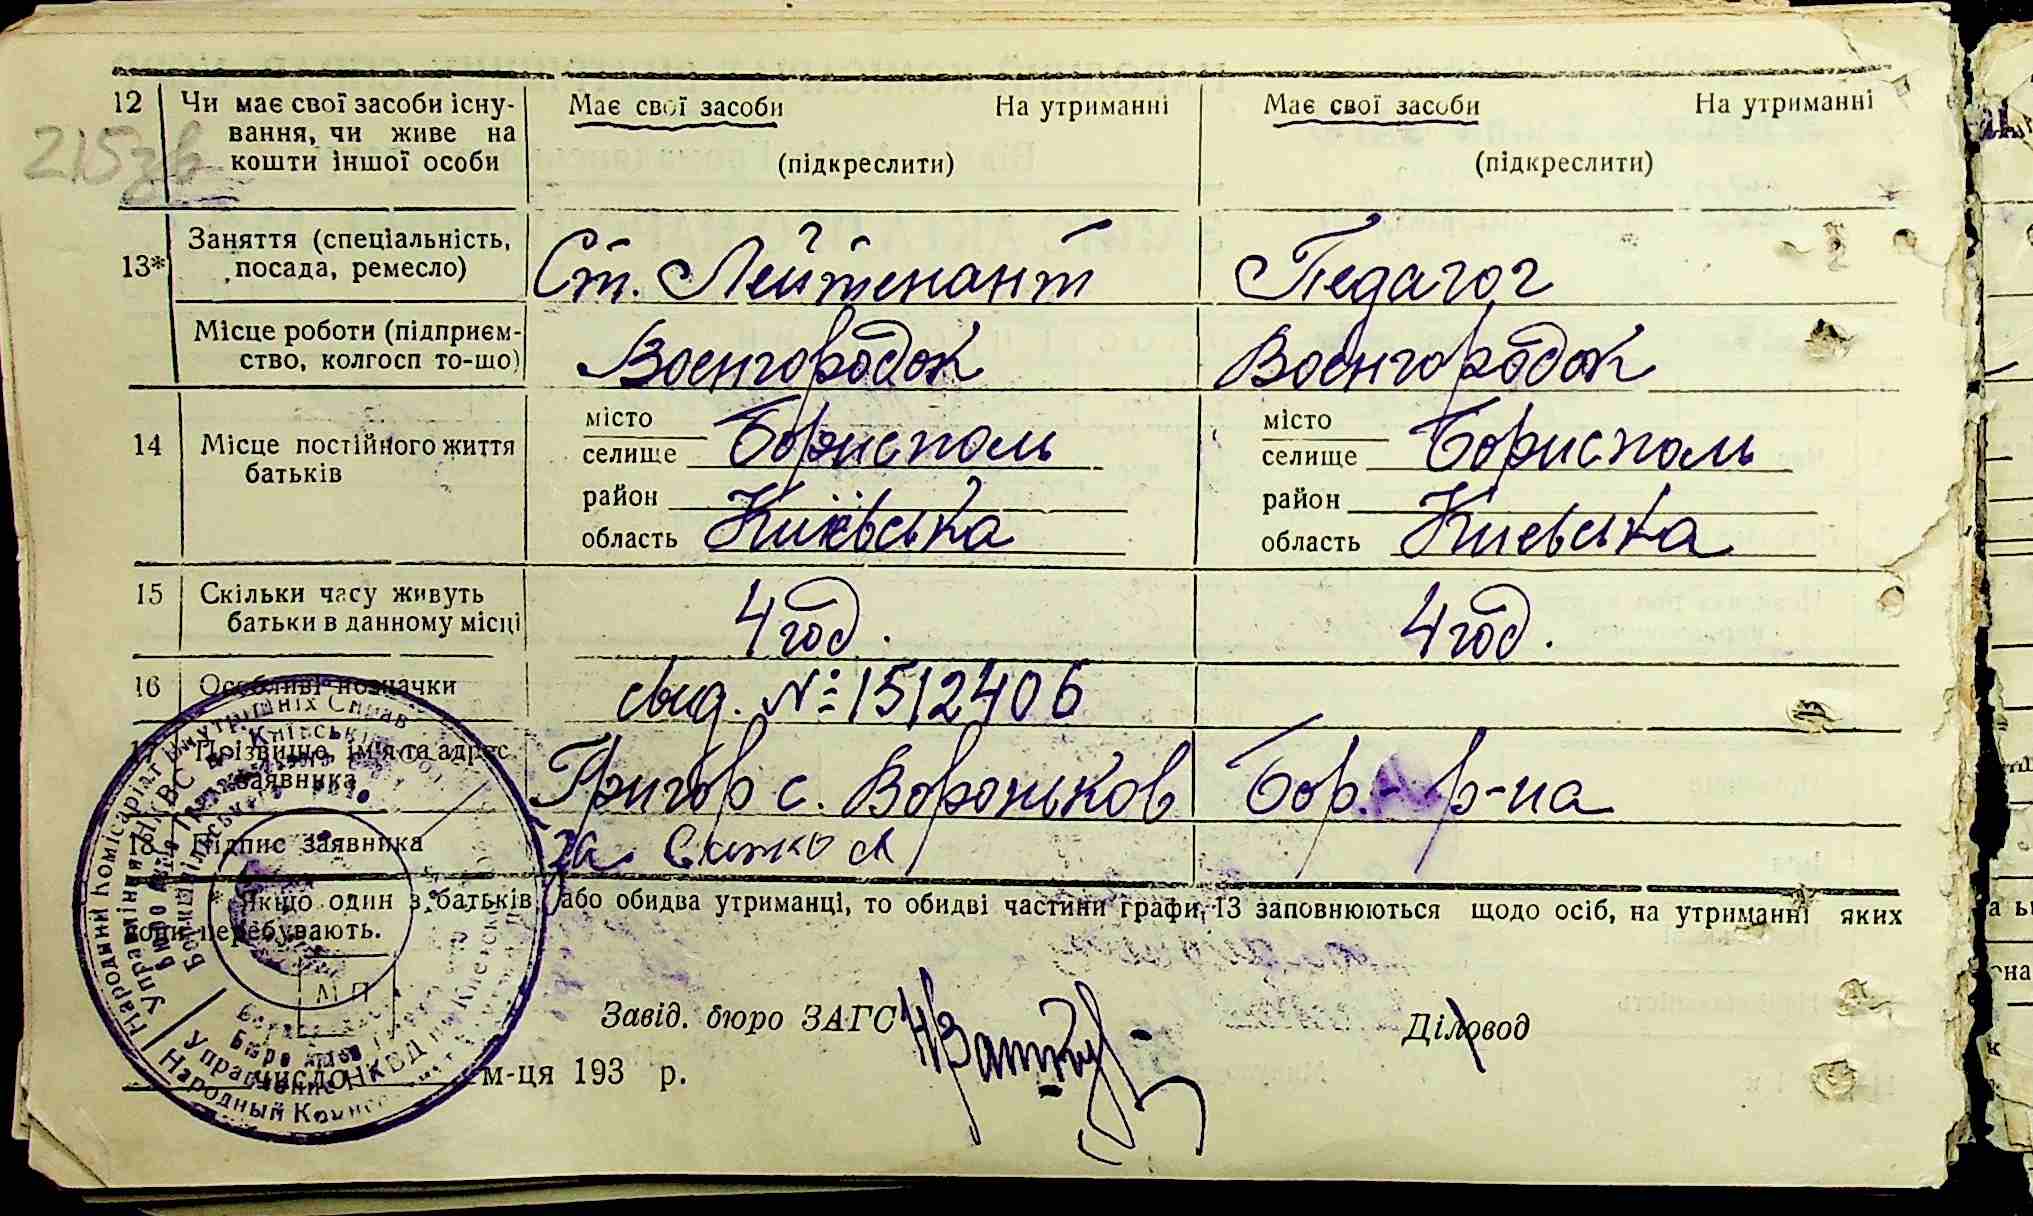 12 Чи має свої засоби існу- Має свої засоби На утриманні Має свої засоби На утриманні
215зв вання, чи живе на
кошти іншої особи (підкреслити) (підкреслити)
13* Заняття (спеціальність, посада, ремесло) Ст. Лейтенант Педагог
Місце роботи (підприєм-
ство, колгосп то-що) Воєнгородок Воєнгородок
14 Місце постійного життя батьків місто Борисполь місто Борисполь
селище селище
район район
область Київська область Киевська
15 Скільки часу живуть
батьки в данному місці 4 год. 4 год.
16 Особливі позначки свид. № 1512406
17 Прізвище, ім'я та адрес
заявника Григор с. Вороньков Бор. р-на
18 Підпис заявника За
* Якщо один з батьків, або обидва утриманці, то обидві частини графи 13 заповнюються щодо осіб, на утриманні яких
вони перебувають.
М П
Завід. бюро ЗАГС Діловод
число м-ця 193 р.
Народний Комісаріат Внутрішніх Справ
Управління НКВС
Управление НКВД